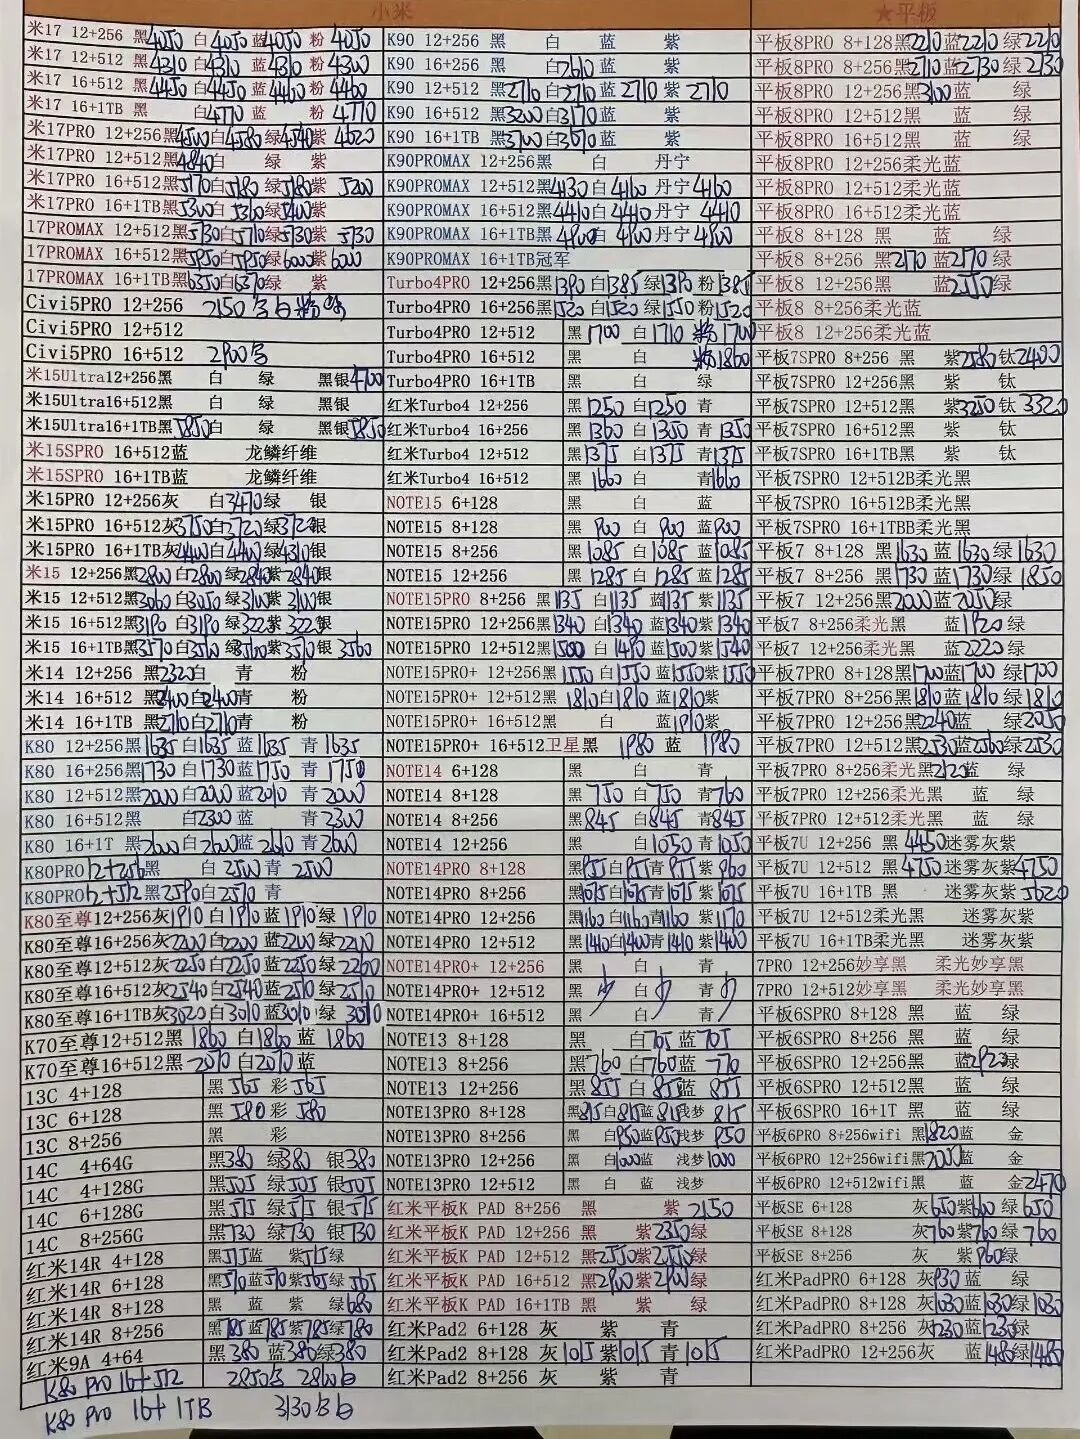 小米
★平板
米17 12+256 黑4050 白4050 蓝4050 粉 4050
米17 12+512 黑4310 白4310 蓝4310 粉 4300
米17 16+512 黑4450 白4450 蓝4460 粉 4460
米17 16+1TB 黑 白4770 粉 4770
米17PRO 12+256黑4500白4580绿4540紫 4520
米17PRO 12+512黑4840 白 绿 紫
米17PRO 16+512黑5170白5180绿5180紫 5200
米17PRO 16+1TB黑5300白5360绿5400紫
17PROMAX 12+512黑5730白5710绿5730紫 5730
17PROMAX 16+512黑5950白5950绿6000紫6000
17PROMAX 16+1TB黑6350白6370绿 紫
Civi5PRO 12+256
Civi5PRO 12+512
Civi5PRO 16+512
米15Ultra12+256黑 白 绿 黑银4700
米15Ultra16+512黑 白 绿 黑银
米15Ultra16+1TB黑5850白 绿 黑银5850
米15SPRO 16+512蓝 龙鳞纤维
米15SPRO 16+1TB蓝 龙鳞纤维
米15PRO 12+256灰 白3470绿 银
米15PRO 16+512灰3750白3720绿 银
米15PRO 16+1TB灰4400白4400绿4310银
米15 12+256黑2800 白2800 绿2840紫2840银
米15 12+512黑3060 白3050 绿3100紫3100银
米15 16+512黑3190 白3190 绿3222紫3222银
米15 16+1TB黑3570白 绿 紫3510银 3560
米14 12+256 黑2320白 青 粉
米14 16+512 黑2400白2400青 粉
米14 16+1TB 黑2710白2710青 粉
K80 12+256黑1635 白1635 蓝1635 青 1635
K80 16+256黑1730 白1730蓝1750 青 1750
K80 12+512黑2000 白2000 蓝2010 青 2000
K80 16+512黑 白2300 蓝 青2300
K80 16+1T 黑2600 白2600蓝2610 青2600
K80PRO12+256黑 白 2500 青 2500
K80PRO12+512黑2590白2570 青
K80至尊12+256灰1910 白1910 蓝1910绿 1910
K80至尊16+256灰2200白2200 蓝2200绿2200
K80至尊12+512灰2250白2250 蓝2250绿 2260
K80至尊16+512灰2540白2540 蓝2510绿2510
K80至尊16+1TB灰3020白3010 蓝3010绿 3010
K70至尊12+512黑 1860 白1860 蓝 1860
K70至尊16+512黑 2070 白2070蓝
13C 4+128 黑 565 彩 565
13C 6+128 黑 580彩 580
13C 8+256 黑 彩
14C 4+64G 黑380 绿380 银380
14C 4+128G 黑505 绿505 银505
14C 6+128G 黑515 绿515 银515
14C 8+256G 黑730 绿730 银730
红米14R 4+128 黑515蓝 紫515绿
红米14R 6+128 黑570蓝570紫565绿565
红米14R 8+128 黑 蓝 紫 绿680
红米14R 8+256 黑785蓝785紫785绿780
红米9A 4+64 黑380 蓝380绿380
K80 Pro 16+512 2850 2860白
K80 Pro 16+1TB 3130 白
K90 12+256 黑 白 蓝 紫
K90 16+256 黑 白2610 蓝 紫
K90 12+512 黑2710白2710 蓝 2710 紫 2710
K90 16+512 黑3200白3170 蓝 紫
K90 16+1TB 黑3700白3670 蓝 紫
K90PROMAX 12+256黑 白 丹宁
K90PROMAX 12+512黑4130白4160 丹宁 4160
K90PROMAX 16+512黑4410白4440 丹宁 4410
K90PROMAX 16+1TB黑4900白 4900 丹宁 4900
K90PROMAX 16+1TB冠军
Turbo4PRO 12+256黑1390 白1385 绿1390 粉1385
Turbo4PRO 16+256黑1520 白1520 绿1550 粉1520
Turbo4PRO 12+512 黑 1700 白 1710 粉1700
Turbo4PRO 16+512 黑 白 粉1860
Turbo4PRO 16+1TB 黑 白 绿
红米Turbo4 12+256 黑1250 白1250 青
红米Turbo4 16+256 黑1360 白1350 青1350
红米Turbo4 12+512 黑1375 白1375 青1375
红米Turbo4 16+512 黑1660 白 青1660
NOTE15 6+128 黑 白 蓝
NOTE15 8+128 黑 900 白 900 蓝900
NOTE15 8+256 黑1085 白1085 蓝1085
NOTE15 12+256 黑1285 白1285 蓝1285
NOTE15PRO 8+256 黑1135 白1135 蓝1135 紫1135
NOTE15PRO 12+256黑1340 白1340 蓝1340紫1340
NOTE15PRO 12+512黑1500 白1490 蓝1500紫1540
NOTE15PRO+ 12+256黑1550 白1550 蓝1550紫1550
NOTE15PRO+ 12+512黑1810白1810 蓝1810紫
NOTE15PRO+ 16+512黑 白 蓝1910紫
NOTE15PRO+ 16+512卫星黑 1980 蓝 1980
NOTE14 6+128 黑 白 青
NOTE14 8+128 黑 750 白750 青760
NOTE14 8+256 黑845 白845 青845
NOTE14 12+256 黑 白1050 青1050
NOTE14PRO 8+128 黑955白955青955 紫960
NOTE14PRO 8+256 黑1075白1075青1075 紫1075
NOTE14PRO 12+256 黑1160白1160青1160 紫1170
NOTE14PRO 12+512 黑1400白1400青1410 紫1400
NOTE14PRO+ 12+256 黑 白 青
NOTE14PRO+ 12+512 黑 白 青
NOTE14PRO+ 16+512 黑 白 青
NOTE13 8+128 黑 白705蓝705
NOTE13 8+256 黑760 白760蓝 770
NOTE13 12+256 黑855 白855蓝 855
NOTE13PRO 8+128 黑815白815蓝815浅梦 815
NOTE13PRO 8+256 黑 白950蓝950浅梦 950
NOTE13PRO 12+256 黑 白1000蓝 浅梦 1000
NOTE13PRO 12+512 黑 白 蓝 浅梦
红米平板K PAD 8+256 黑 紫2150
红米平板K PAD 12+256 黑 紫2350绿
红米平板K PAD 12+512 黑2550紫2550绿
红米平板K PAD 16+512 黑2900紫2900绿
红米平板K PAD 16+1TB 黑 紫 绿
红米Pad2 6+128 灰 紫 青
红米Pad2 8+128 灰1015 紫1015 青1015
红米Pad2 8+256 灰 紫 青
平板8PRO 8+128黑2210蓝2210 绿2210
平板8PRO 8+256黑2710蓝2730 绿2730
平板8PRO 12+256黑3100蓝 绿
平板8PRO 12+512黑 蓝 绿
平板8PRO 16+512黑 蓝 绿
平板8PRO 12+256柔光蓝
平板8PRO 12+512柔光蓝
平板8PRO 16+512柔光蓝
平板8 8+128 黑 蓝 绿
平板8 8+256 黑2170 蓝2170 绿
平板8 12+256 黑 蓝2550 绿
平板8 8+256柔光蓝
平板8 12+256柔光蓝
平板7SPRO 8+256 黑 紫2580钛2400
平板7SPRO 12+256黑 紫 钛
平板7SPRO 12+512黑 紫3250 钛 3320
平板7SPRO 16+512黑 紫 钛
平板7SPRO 16+1TB黑 紫 钛
平板7SPRO 12+512B柔光黑
平板7SPRO 16+512B柔光黑
平板7SPRO 16+1TBB柔光黑
平板7 8+128 黑1630 蓝1630 绿1630
平板7 8+256 黑1730 蓝1730 绿1850
平板7 12+256黑2000蓝2050绿
平板7 8+256柔光黑 蓝1920 绿
平板7 12+256柔光黑 蓝2220绿
平板7PRO 8+128黑1700蓝1700 绿1700
平板7PRO 8+256黑1810 蓝1810 绿1810
平板7PRO 12+256黑2240蓝 绿2050
平板7PRO 12+512黑2530蓝2560绿2530
平板7PRO 8+256柔光黑2120蓝 绿
平板7PRO 12+256柔光黑 蓝 绿
平板7PRO 12+512柔光黑 蓝 绿
平板7U 12+256 黑 4450迷雾灰紫
平板7U 12+512 黑 4750迷雾灰紫4750
平板7U 16+1TB 黑 迷雾灰紫5620
平板7U 12+512柔光黑 迷雾灰紫
平板7U 16+1TB柔光黑 迷雾灰紫
7PRO 12+256妙享黑 柔光妙享黑
7PRO 12+512妙享黑 柔光妙享黑
平板6SPRO 8+128 黑 蓝 绿
平板6SPRO 8+256 黑 蓝 绿
平板6SPRO 12+256黑 蓝2920绿
平板6SPRO 12+512黑 蓝 绿
平板6SPRO 16+1T 黑 蓝 绿
平板6PRO 8+256wifi 黑1820蓝 金
平板6PRO 12+256wifi黑2000蓝 金
平板6PRO 12+512wifi黑 蓝 金2470
平板SE 6+128 灰650紫600 绿 650
平板SE 8+128 灰760紫760 绿760
平板SE 8+256 灰 紫960绿
红米PadPRO 6+128 灰930 蓝 绿
红米PadPRO 8+128 灰1030蓝1030绿1030
红米PadPRO 8+256 灰1230蓝1230绿
红米PadPRO 12+256灰 蓝1480绿1480